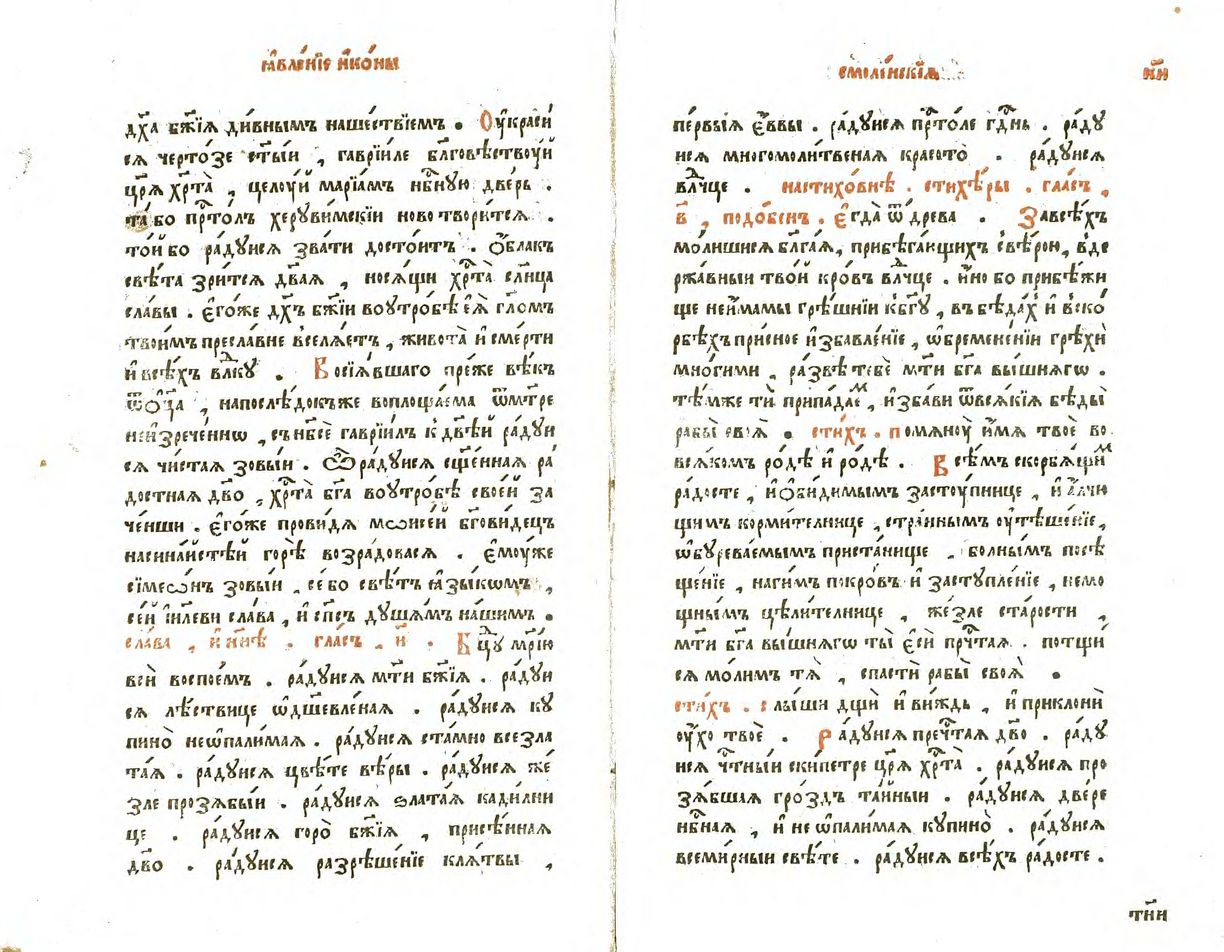 ꙗ҆вле́нїе и҆ко́ны
дх҃а бж҃їѧ ди́внымъ наше́ствїемъ . Оу҆краси́
сѧ черто́зе ст҃ы́й , гаврїи́ле бл҃говѣ́ствꙋй
цр҃ѧ̀ хрⷭ҇та̀ , цѣлꙋ́й марїа́мъ нбⷭ҇нꙋю две́рь .
та́ бо прⷭ҇то́лъ херꙋви́мскїй но́во твори́тсѧ .
то́й бо ра́дꙋйсѧ зва́ти досто́итъ . Ѻ҆́блакъ
свѣ́та зри́тсѧ дв҃аѧ , носѧ́щи хрⷭ҇та̀ сл҃нца
сла́вы . Є҆го́же дх҃ъ бж҃їй во ᲂу҆тро́бѣ є҆ѧ̀ гл҃омъ
твои́мъ пресла́вне вселѧ́етъ , живота̀ и҆ сме́рти
и҆ всѣ́хъ вл҃кꙋ . Восїѧ́вшаго пре́же вѣ́къ
ѿ ѻ҆ц҃а̀ , напослѣ́докъ же воплоща́ема ѿ мт҃ре
неизрече́ннѡ , съ нб҃сѐ гаврїи́лъ к҆ дв҃ѣй ра́дꙋй
сѧ чи́стаѧ зовы́й . Ѽ ра́дꙋйсѧ сщ҃е́ннаѧ ра́
достнаѧ дв҃о , хрⷭ҇та̀ бг҃а во ᲂу҆тро́бѣ свое́й за
че́нши . Є҆го́же прови́дѧ мѡисе́й бг҃ови́децъ
на сина́йстѣй горѣ̀ возра́довасѧ . Є҆мꙋ́же
сїмеѡ́нъ зовы́й , се́ бо свѣ́тъ ꙗ҆зы́кѡмъ ,
се́й і҆и҃леви сла́ва , и҆ сп҃съ дꙋша́мъ на́шимъ .
сла́ва , и҆ ны́нѣ . гла́съ , и҃ . Бцⷣꙋ мр҃і́ю
всѝ воспое́мъ . ра́дꙋйсѧ мт҃и бж҃їѧ . ра́дꙋй
сѧ лѣ́ствице ѡ҆дш҃евле́наѧ . ра́дꙋйсѧ кꙋ
пино̀ неѡпали́маѧ . ра́дꙋйсѧ ста́мно всезла
та́ѧ . ра́дꙋйсѧ цвѣ́те вѣ́ры . ра́дꙋйсѧ же́
зле прозѧ́бый . ра́дꙋйсѧ ꙁлата́ѧ кади́лни
це . ра́дꙋйсѧ горо̀ бж҃їѧ , присѣ́ннаѧ
дв҃о . ра́дꙋйсѧ разрѣше́нїе клѧ́твы ,
смоле́нскїѧ
к҃и
пе́рвыѧ є҆́ввы . ра́дꙋйсѧ прⷭ҇то́ле гдⷭ҇нь . ра́дꙋ
йсѧ многомоли́твенаѧ красото̀ . ра́дꙋйсѧ
влⷣчце . на стихо́внѣ . стихѣ́ры . гла́съ ,
в҃ , подо́бенъ . Є҆гда̀ ѿ дре́ва . За всѣ́хъ
мо́лишисѧ бл҃га́ѧ , прибѣга́ющихъ с҆ вѣ́рою , в҆ де
ржа́вный тво́й кро́въ влⷣчце . и҆́но бо прибѣ́жи
ще не и҆́мамы грѣ́шнїи к҆ бг҃ꙋ , въ бѣда́хъ и҆ в҆ ско́
рбѣхъ при́сное и҆збавле́нїе , ѡ҆бремене́нїи грѣхѝ
мно́гими , ра́звѣ тебѐ мт҃и бг҃а вы́шнѧгѡ .
тѣ́мже тѝ припа́даемъ , и҆зба́ви ѿ всѧ́кїѧ бѣды̀
рабы̀ своѧ̀ . сти́хъ . помѧнꙋ̀ и҆́мѧ твоѐ во
всѧ́комъ ро́дѣ и҆ ро́дѣ . Всѣ́мъ скорбѧ́щимъ
ра́досте , и҆ ѻ҆би́димымъ застꙋ́пнице , и҆ а҆́лчю
щимъ корми́телнице , стра́ннымъ ᲂу҆тѣше́нїе ,
ѡ҆бꙋрева́емымъ приста́нище , болны́мъ посѣ
ще́нїе , наги́мъ покро́въ и҆ застꙋпле́нїе , немо
щны́мъ цѣли́телнице , же́зле ста́рости ,
мт҃и бг҃а вы́шнѧгѡ ты̀ є҆сѝ прчⷭ҇таѧ . потщи́
сѧ мо́лимъ тѧ̀ , спастѝ рабы̀ своѧ̀ .
сти́хъ . слы́ши дщѝ и҆ ви́ждь , и҆ приклонѝ
ᲂу҆́хо твоѐ . Ра́дꙋйсѧ пречⷭ҇таѧ дв҃о . ра́дꙋ
йсѧ чтⷭ҇ны́й ски́петре цр҃ѧ̀ хрⷭ҇та̀ . ра́дꙋйсѧ про
зѧ́бшаѧ гро́здъ та́йный . ра́дꙋйсѧ две́ре
нбⷭ҇наѧ , и҆ неѡпали́маѧ кꙋпино̀ . ра́дꙋйсѧ
всеми́рный свѣ́те . ра́дꙋйсѧ всѣ́хъ ра́досте .
тн҃и